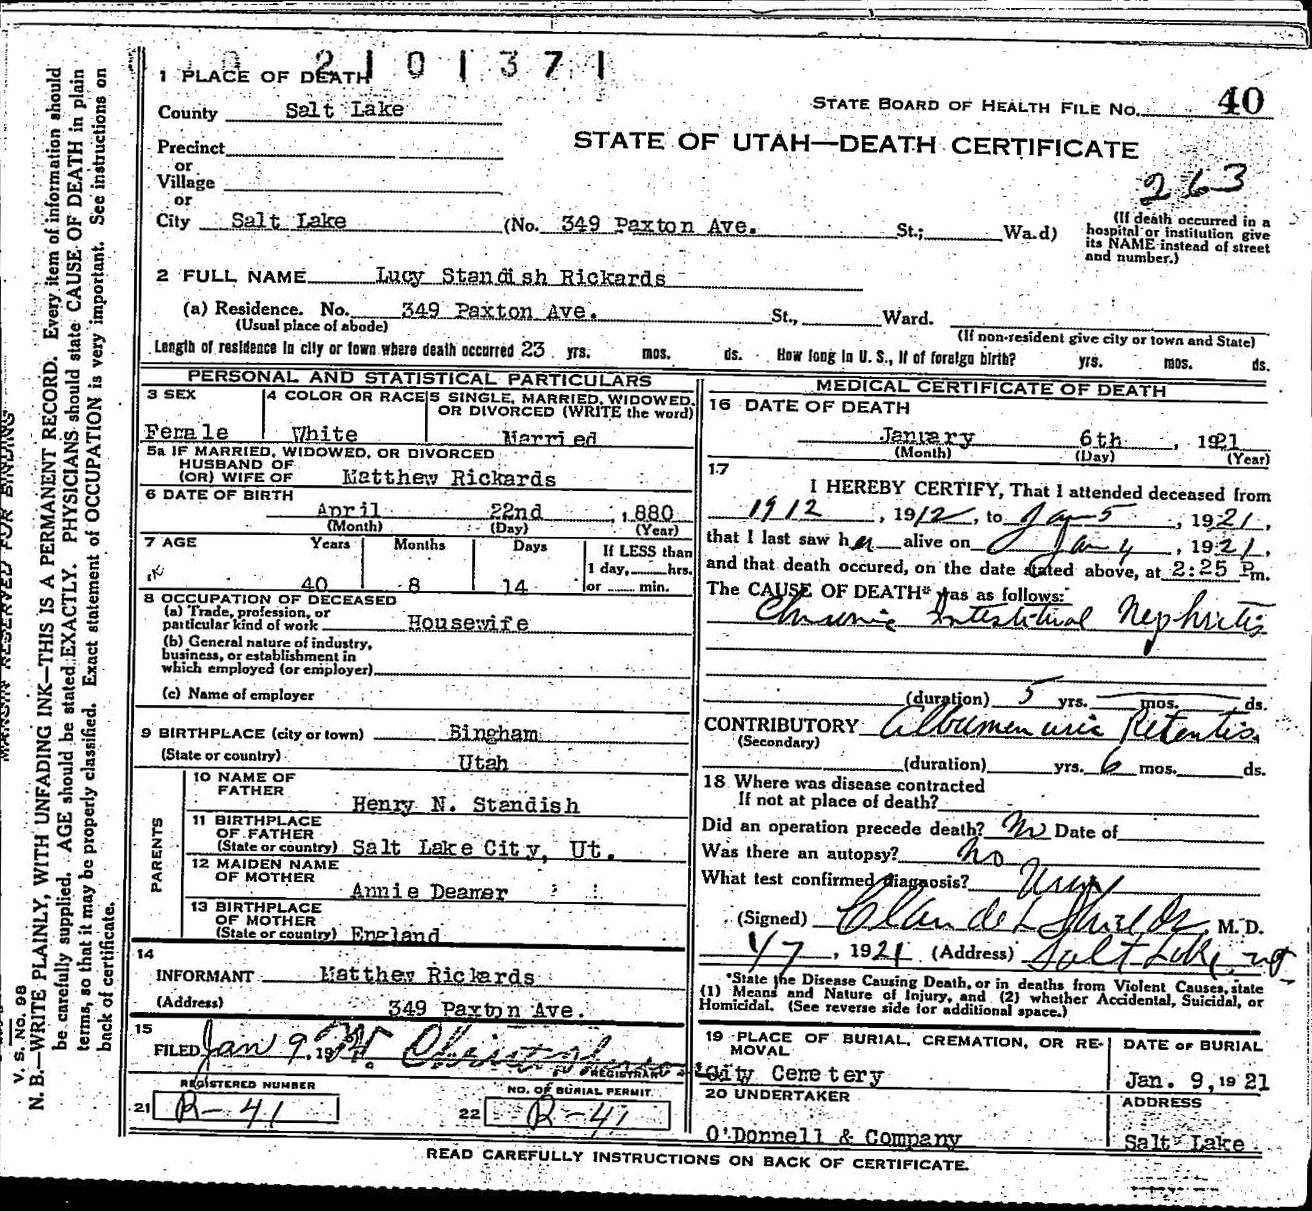 2 1 0 1 3 7 1
1 PLACE OF DEATH
County Salt Lake
STATE BOARD OF HEALTH FILE NO. 40
STATE OF UTAH—DEATH CERTIFICATE
263
Precinct
or
Village
or
City Salt Lake (No. 349 Paxton Ave. St.; Wa.d)
(If death occurred in a
hospital or institution give
its NAME instead of street
and number.)
2 FULL NAME Lucy Standish Rickards
(a) Residence. No. 349 Paxton Ave. St., Ward.
(Usual place of abode) (If non-resident give city or town and State)
Length of residence in city or town where death occurred 23 yrs. mos. ds. How long in U. S., if of foreign birth? yrs. mos. ds.
PERSONAL AND STATISTICAL PARTICULARS
3 SEX
Female
4 COLOR OR RACE
White
5 SINGLE, MARRIED, WIDOWED,
OR DIVORCED (WRITE the word)
Married
5a IF MARRIED, WIDOWED, OR DIVORCED
HUSBAND OF
(OR) WIFE OF Matthew Rickards
6 DATE OF BIRTH
April 22nd , 1880
(Month) (Day) (Year)
7 AGE Years Months Days If LESS than
1 day, hrs.
40 8 14 or min.
8 OCCUPATION OF DECEASED
(a) Trade, profession, or
particular kind of work Housewife
(b) General nature of industry,
business, or establishment in
which employed (or employer)
(c) Name of employer
9 BIRTHPLACE (city or town) Bingham
(State or country) Utah
PARENTS
10 NAME OF
FATHER
Henry N. Standish
11 BIRTHPLACE
OF FATHER
(State or country) Salt Lake City, Ut.
12 MAIDEN NAME
OF MOTHER
Annie Deamer
13 BIRTHPLACE
OF MOTHER
(State or country) England
14
INFORMANT Matthew Rickards
(Address) 349 Paxton Ave.
15
FILED Jan 9, 19
REGISTRAR
REGISTERED NUMBER
21 R-41
NO. OF BURIAL PERMIT
22 R-41
MEDICAL CERTIFICATE OF DEATH
16 DATE OF DEATH
January 6th , 1921
(Month) (Day) (Year)
17
I HEREBY CERTIFY, That I attended deceased from
1912 , 1912, to Jan 5 , 1921,
that I last saw her alive on Jan 4 , 1921,
and that death occured, on the date stated above, at 2:25 Pm.
The CAUSE OF DEATH* was as follows:
Chronic Intestitual Nephritis
(duration) 5 yrs. mos. ds.
CONTRIBUTORY Albumenuric Retentis.
(Secondary)
(duration) yrs. 6 mos. ds.
18 Where was disease contracted
If not at place of death?
Did an operation precede death? No Date of
Was there an autopsy? No
What test confirmed diagnosis? Urin
(Signed) Claude L Shields, M. D.
1/7 , 1921 (Address) Salt Lake, Ut
*State the Disease Causing Death, or in deaths from Violent Causes, state
(1) Means and Nature of Injury, and (2) whether Accidental, Suicidal, or
Homicidal. (See reverse side for additional space.)
19 PLACE OF BURIAL, CREMATION, OR RE-
MOVAL
City Cemetery
DATE OF BURIAL
Jan. 9, 1921
20 UNDERTAKER
O'Donnell & Company
ADDRESS
Salt Lake
READ CAREFULLY INSTRUCTIONS ON BACK OF CERTIFICATE.
MARGIN RESERVED FOR BINDING
V. S. No. 98
N. B.—WRITE PLAINLY, WITH UNFADING INK—THIS IS A PERMANENT RECORD. Every item of information should
be carefully supplied. AGE should be stated EXACTLY. PHYSICIANS should state CAUSE OF DEATH in plain
terms, so that it may be properly classified. Exact statement of OCCUPATION is very important. See instructions on
back of certificate.